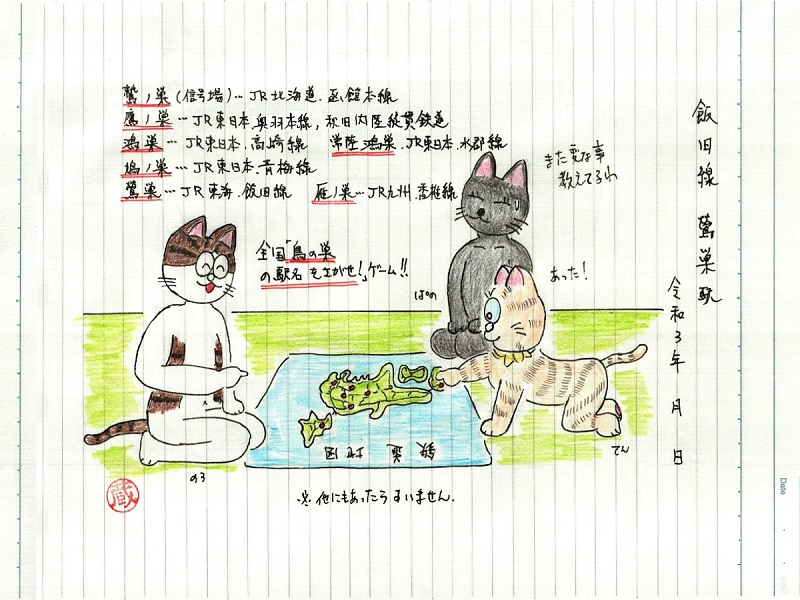 飯田線 鶯巣駅
令和3年 月 日
鷲ノ巣(信号場)…JR北海道.函館本線
鷹ノ巣…JR東日本.奥羽本線,秋田内陸縦貫鉄道
鴻巣…JR東日本.高崎線 常陸鴻巣.JR東日本.水郡線
鳩ノ巣…JR東日本.青梅線
鶯巣…JR東海.飯田線 雁ノ巣…JR九州.香椎線
また変な事
教えてるわ
全国「鳥の巣
の駅名をさがせ!」ゲーム!!
ぱの
あった!
てん
のろ
蔵
※他にもあったらすいません.
Date